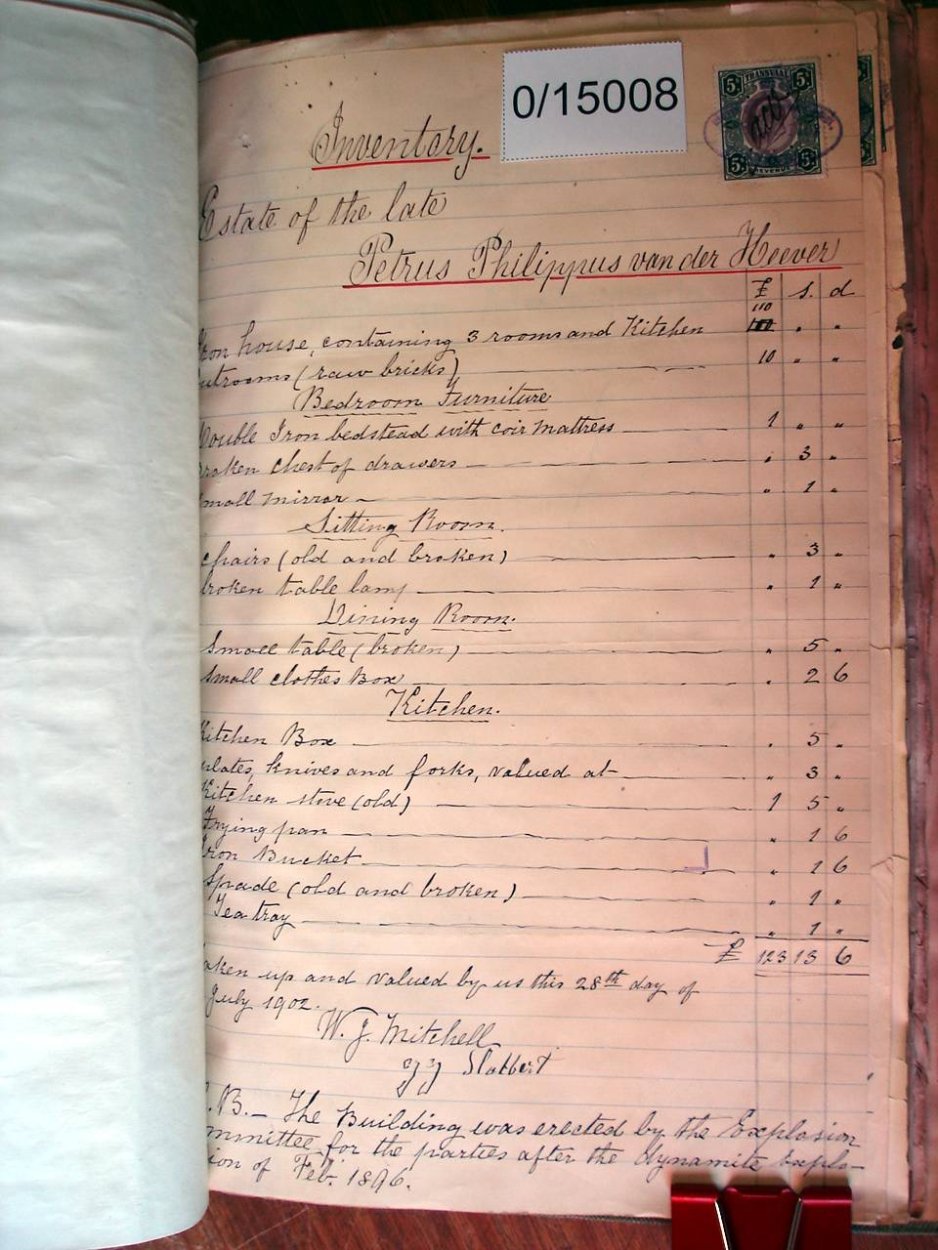 0/15008
5s TRANSVAAL 5s
5s REVENUE 5s
Inventory.
Estate of the late
Petrus Philippus van der Heever
£ s. d
110
ron house, containing 3 rooms and Kitchen 100 " "
utrooms (raw bricks) 10 " "
Bedroom Furniture
Double Iron bedstead with coir Mattress 1 " "
roken chest of drawers " 3 "
mall mirror " 1 "
Sitting Room.
chairs (old and broken) " 3 "
broken table lamp " 1 "
Dining Room.
Small table (broken) " 5 "
Small clothes Box " 2 6
Kitchen.
Kitchen Box " 5 "
plates, knives and forks, valued at " 3 "
Kitchen stove (old) 1 5 "
Frying pan " 1 6
Iron Bucket " 1 6
Spade (old and broken) " 1 "
Tea tray " 1 "
£ 123 13 6
aken up and valued by us this 28th day of
July 1902.
W. J. Mitchell
Slabbert
.B. — The Building was erected by the Explosion
mmittee for the parties after the dynamite Explo-
ion of Feb. 1896.